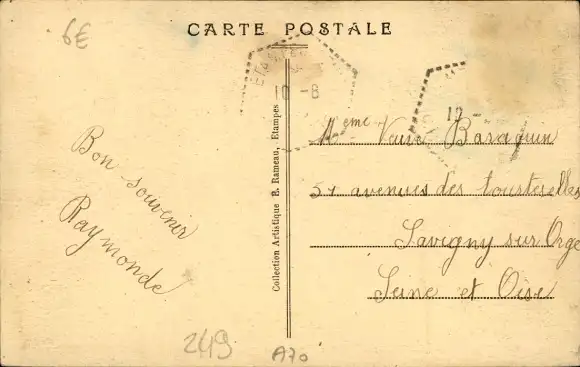 6€
CARTE POSTALE
10 -8
Bon souvenir
Raymonde
Collection Artistique E. Rameau, Etampes
Mème Baraquin
51 avenues des tourterelles
Savigny sur Orge
Seine et Oise
249
A70